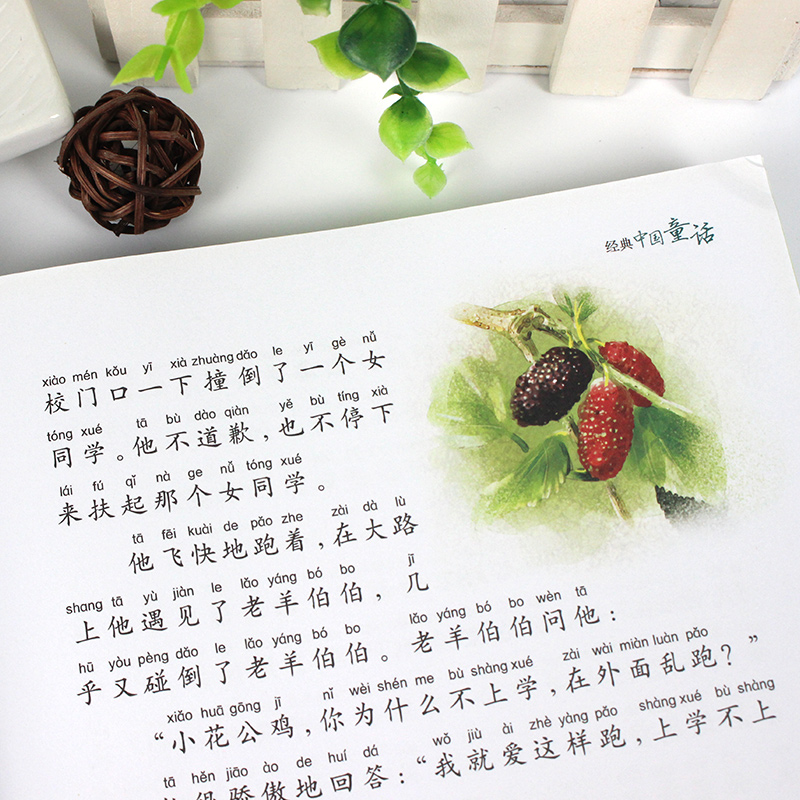 经典中国童话
xiào mén kǒu yī xià zhuàng dǎo le yī gè nǚ
校门口一下撞倒了一个女
tóng xué tā bù dào qiàn yě bù tíng xià
同学。他不道歉,也不停下
lái fú qǐ nà ge nǚ tóng xué
来扶起那个女同学。
tā fēi kuài de pǎo zhe zài dà lù
他飞快地跑着,在大路
shang tā yù jiàn le lǎo yáng bó bo jǐ
上他遇见了老羊伯伯,几
hū yòu pèng dǎo le lǎo yáng bó bo lǎo yáng bó bo wèn tā
乎又碰倒了老羊伯伯。老羊伯伯问他:
xiǎo huā gōng jī nǐ wèi shén me bù shàng xué zài wài miàn luàn pǎo
“小花公鸡,你为什么不上学,在外面乱跑?”
tā hěn jiāo ào de huí dá wǒ jiù ài zhè yàng pǎo shàng xué bù shàng
骄傲地回答:“我就爱这样跑,上学不上